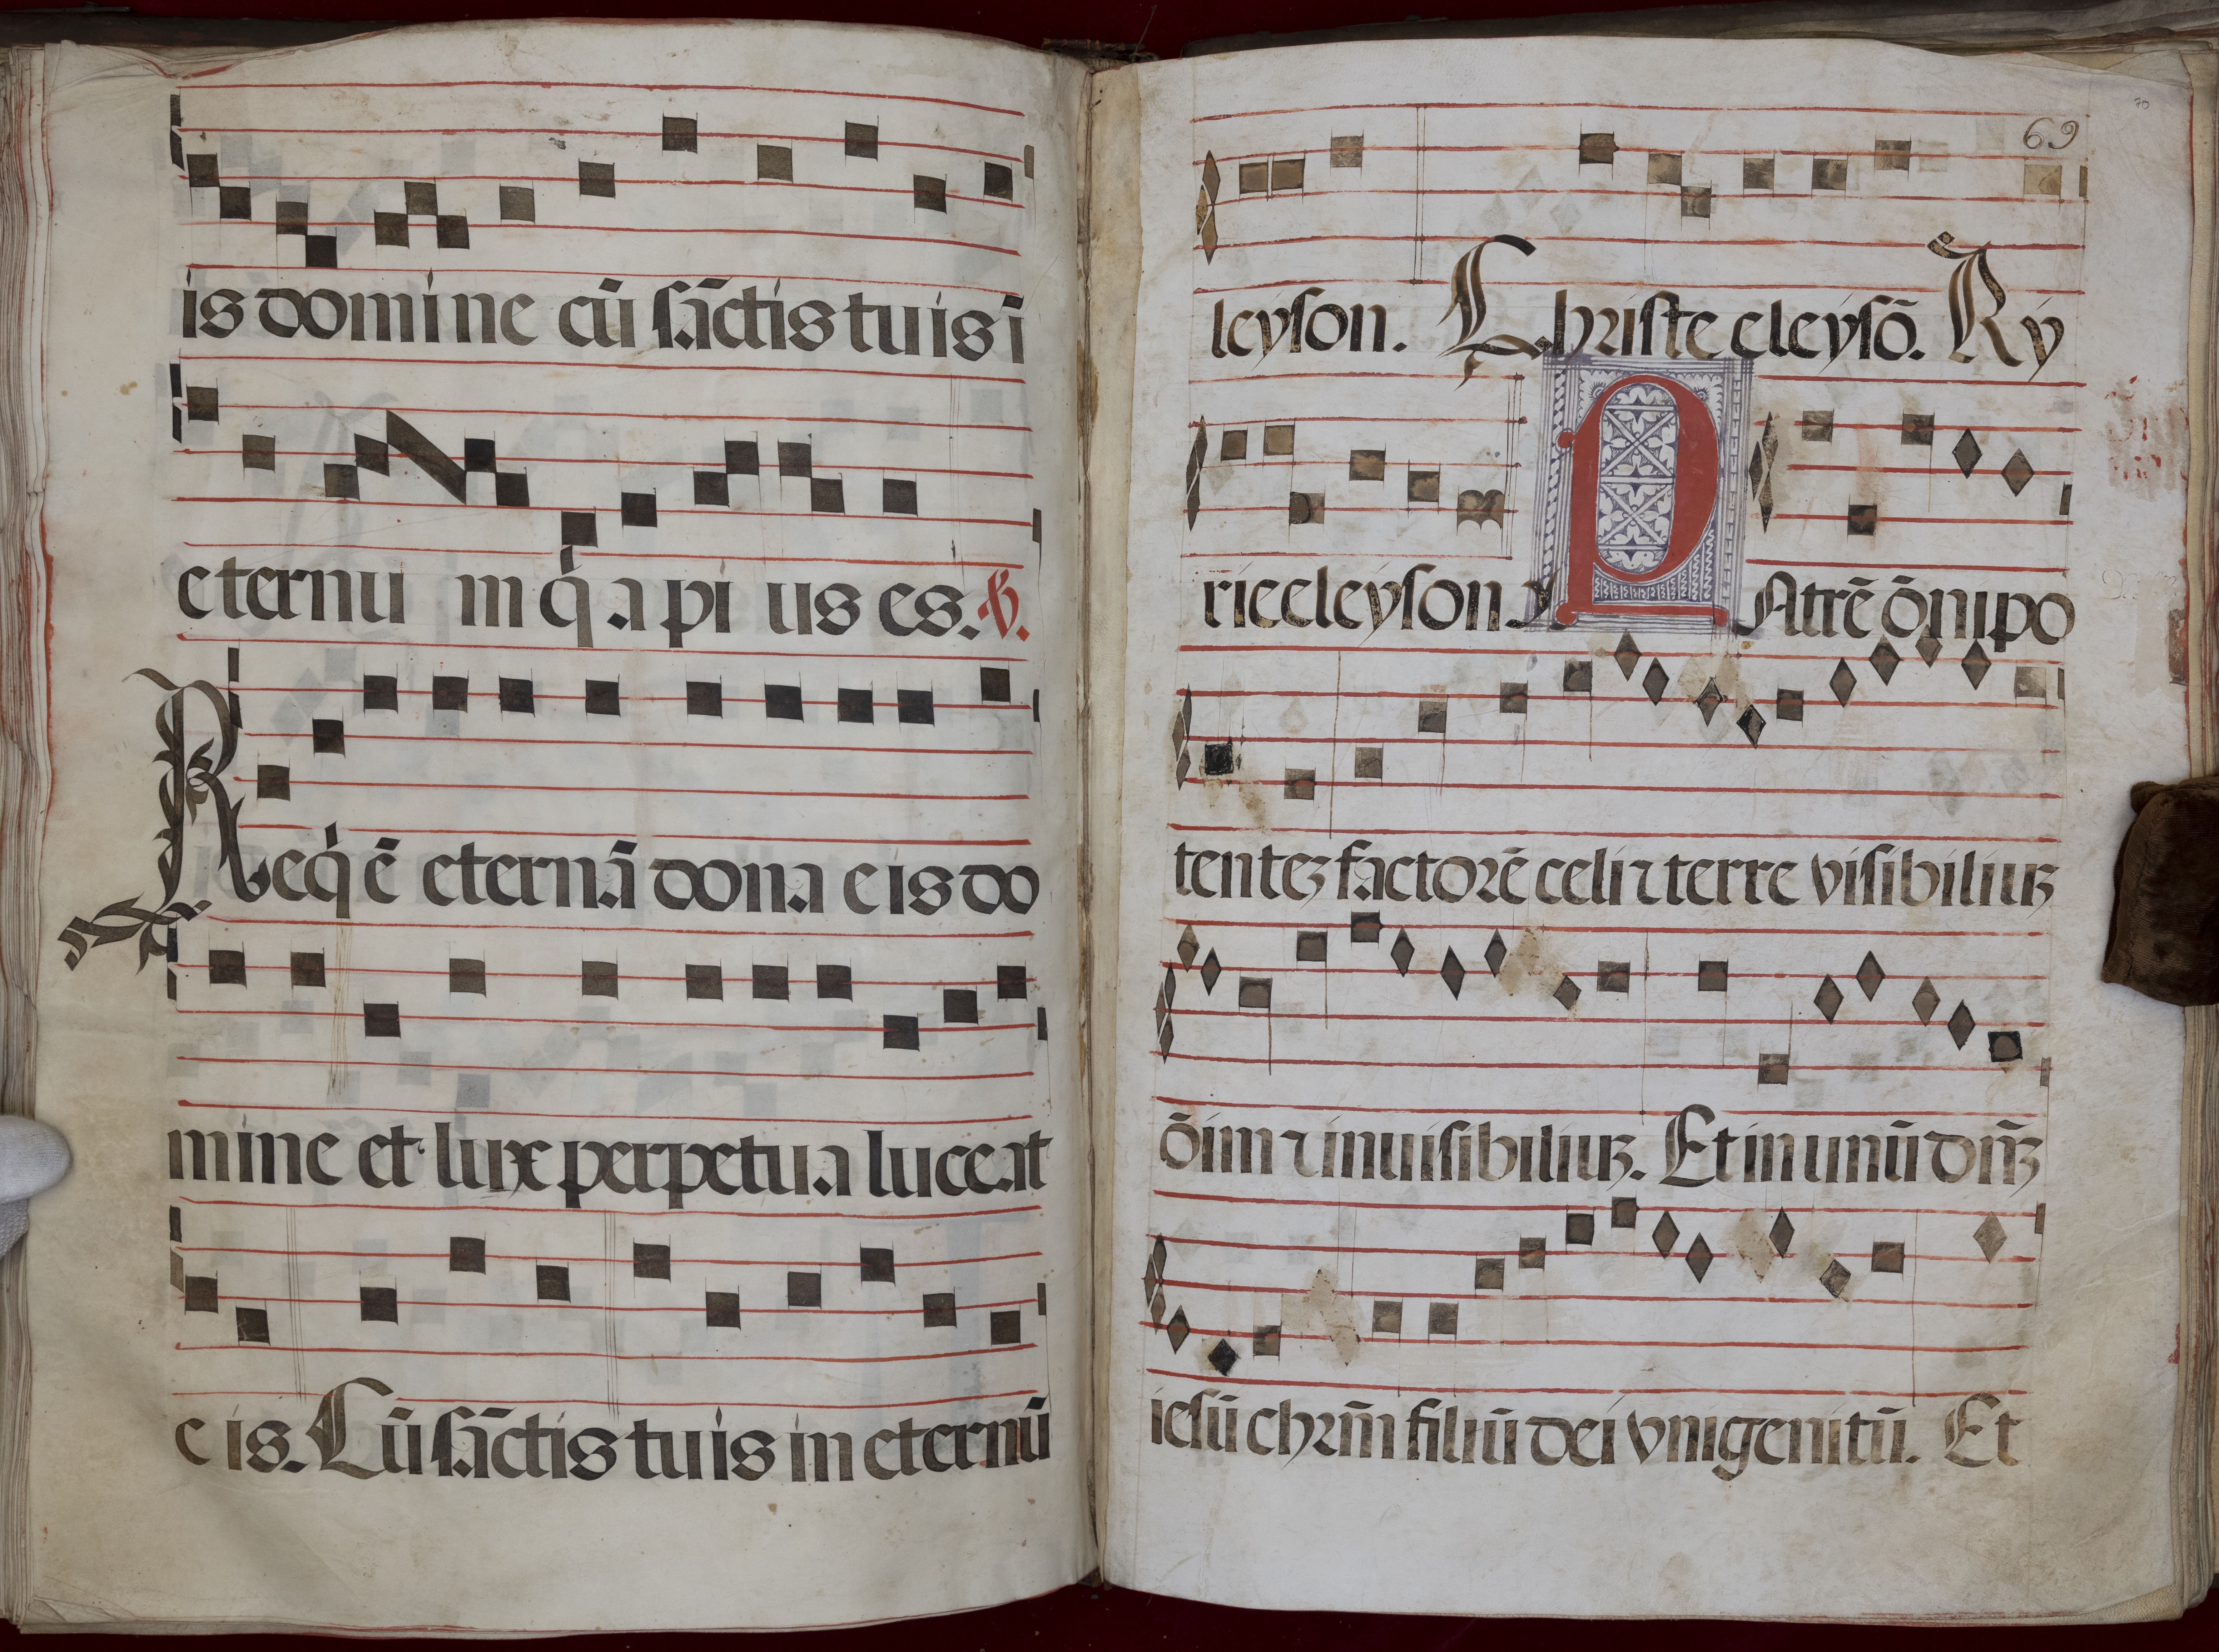 is domine cū sāctis tuis ī
eternu m q̇a pi us es. ℣.
Req̇ē eternā dona eis do
mine et lux perpetua luceat
eis. Cū sāctis tuis in eternū
70
69
leyson. Christe eleysō. Ky
rieeleyson
PAtrē ōnipo
tenteꝫ factorē celi ⁊ terre visibiliuꝫ
ōim ⁊ inuisibiliuꝫ. Et in unū dn̄ꝫ
iesū chrm̄ filiū dei vnigenitū. Et